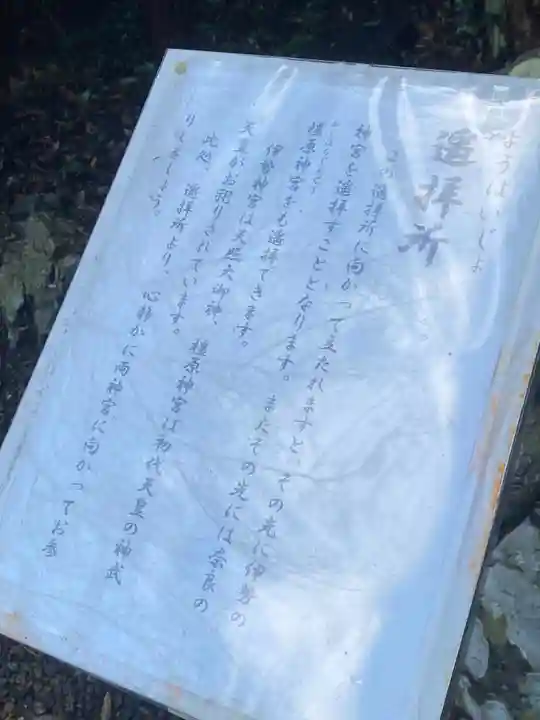 ようはいじょ
遥拝所
この遥拝所に向かって立たれますと、その先に伊勢の
神宮を遥拝することとなります。またその先には奈良の
橿原神宮をも遥拝できます。
伊勢神宮は天照大御神、橿原神宮は初代天皇の神武
天皇がお祀りされています。
此処、遥拝所より、心静かに両神宮に向かってお参
りしましょう。